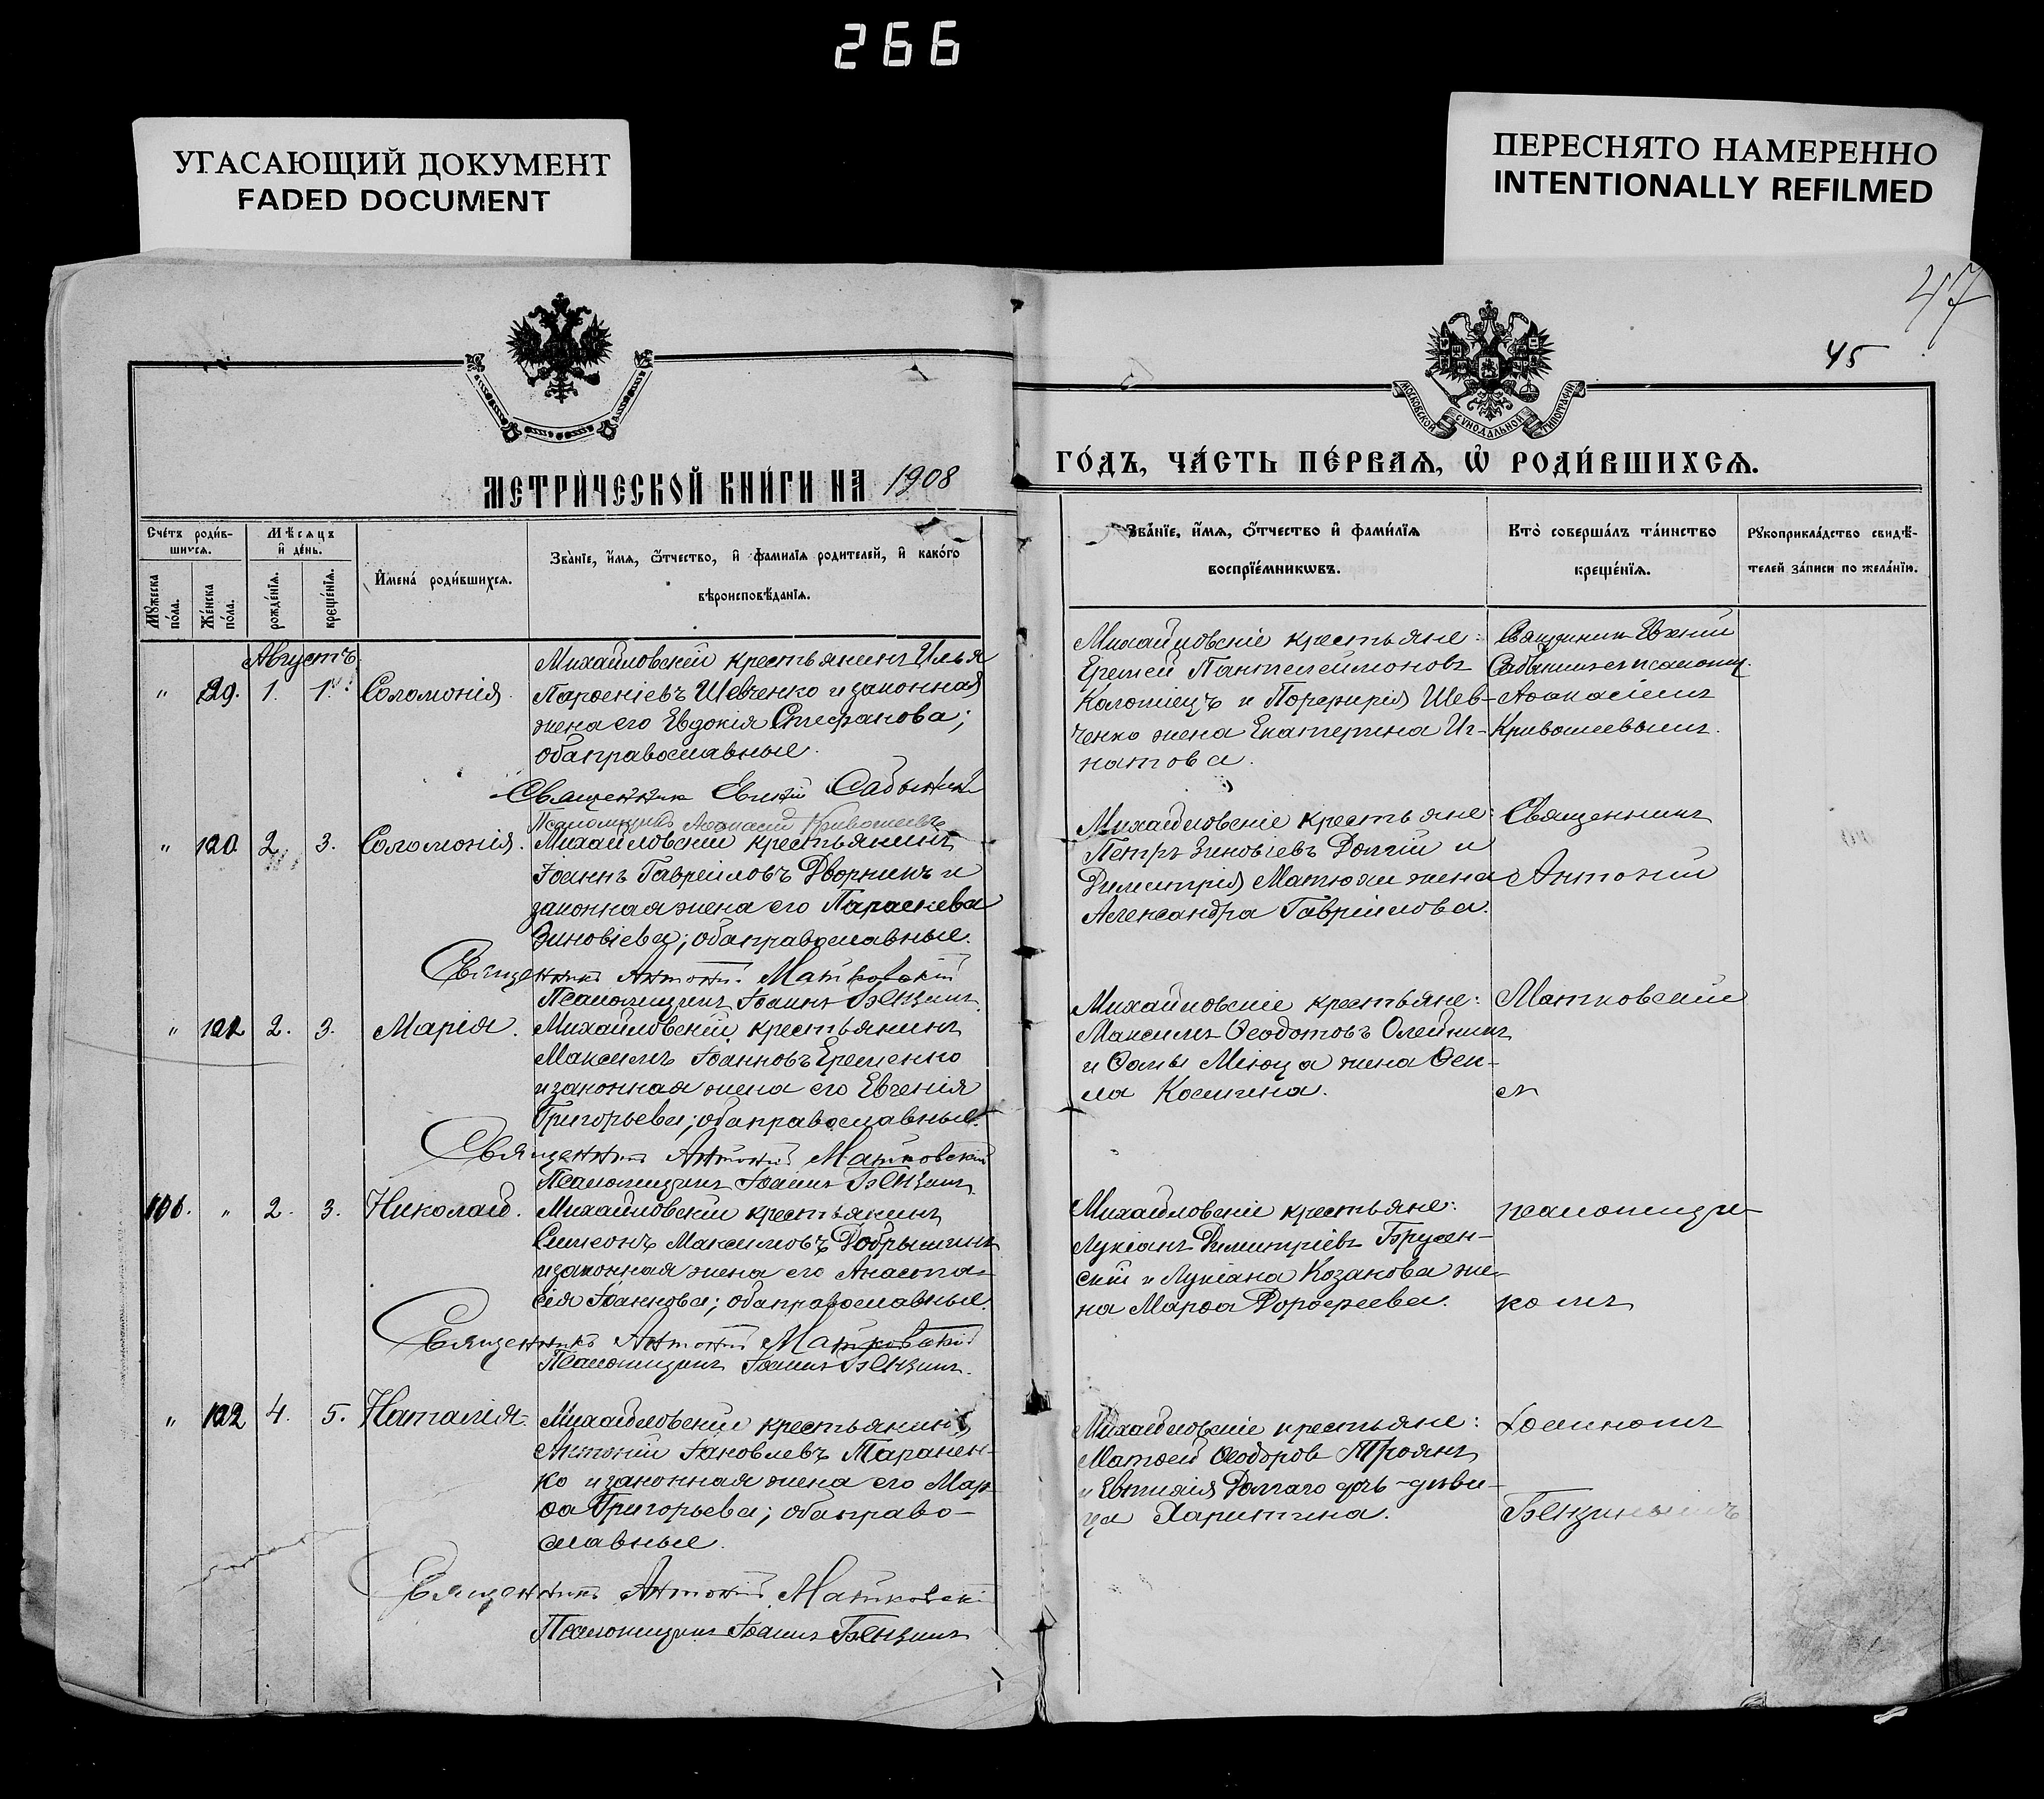 266
УГАСАЮЩИЙ ДОКУМЕНТ
FADED DOCUMENT
ПЕРЕСНЯТО НАМЕРЕННО
INTENTIONALLY REFILMED
47
45
МОСКОВСКОЙ СѴНОДАЛЬНОЙ ТИПОГРАФІИ
МЕТРИ́ЧЕСКОЙ КНИ́ГИ НА 1908
ГО́ДЪ, ЧА́СТЬ ПЕ́РВАѦ, Ѡ҆ РОДИ́ВШИХСѦ.
Сче́тъ роди́в-
шихсѧ.
Мꙋ́жеска по́ла.
Же́нска по́ла.
Мѣ́сѧцъ
и҆ де́нь.
рожде́нїѧ.
креще́нїѧ.
И҆мена̀ роди́вшихсѧ.
Зва́нїе, и҆́мѧ, ѻ҆́тчество, и҆ фами́лїѧ роди́телей, и҆ како́гѡ
вѣроисповѣ́данїѧ.
Зва́нїе, и҆́мѧ, ѻ҆́тчество и҆ фами́лїѧ
воспрїе́мникѡвъ.
Кто̀ соверша́лъ та́инство
креще́нїѧ.
Рꙋкоприкла́дство свидѣ́-
телей за́писи по жела́нїю.
Августъ
" 29. 1. 1. Соломонія.
Михайловскій крестьянинъ Илья
Парѳеніевъ Шевченко и законная
жена его Евдокія Стефанова;
оба православные.
Священникъ Евгеній Сабынинъ
Псаломщикъ Аѳанасій Кривошеевъ
Михайловскіе крестьяне:
Еремей Пантелеймоновъ
Коломіецъ и Порфирія Шев-
ченко жена Екатерина Иг-
натова.
Священникъ Евгеній
Сабынинъ съ псаломщ.
Аѳанасіемъ
Кривошеевымъ.
" 120 2. 3. Соломонія.
Михайловскій крестьянинъ
Іоаннъ Гавріиловъ Дворникъ и
законная жена его Параскева
Зиновіева; оба православные.
Священникъ Антоній Матковскій
Псаломщикъ Іоаннъ Бензинъ
Михайловскіе крестьяне:
Петръ Зиновіевъ Долгій и
Димитрія Матюхи жена
Александра Гавріилова.
Священникъ
Антоній
" 121 2. 3. Марія.
Михайловскій крестьянинъ
Максимъ Іоанновъ Еременко
и законная жена его Евгенія
Григорьева; оба православные.
Священникъ Антоній Матковскій
Псаломщикъ Іоаннъ Бензинъ
Михайловскіе крестьяне:
Максимъ Ѳеодотовъ Олейникъ
и Ѳомы жена Ѳек-
ла Космина.
Матковскій
съ
106. " 2. 3. Николай.
Михайловскій крестьянинъ
Симеонъ Максимовъ Добрышинъ
и законная жена его Анаста-
сія Іоаннова; оба православные.
Священникъ Антоній Матковскій
Псаломщикъ Іоаннъ Бензинъ.
Михайловскіе крестьяне:
Лукіанъ Димитріевъ Брусен-
скій и Лукіана Козакова же-
на Марѳа Дороѳеева.
псаломщи-
комъ
" 122 4. 5. Наталія.
Михайловскій крестьянинъ
Антоній Іаковлевъ Таранен-
ко и законная жена его Мар-
ѳа Григорьева; оба право-
славные.
Священникъ Антоній Матковскій
Псаломщикъ Іоаннъ Бензинъ
Михайловскіе крестьяне:
Матѳей Ѳеодоровъ Троянъ
и Евтихія Долгаго дочь-дѣви-
ца Харитина.
Іоанномъ
Бензинымъ